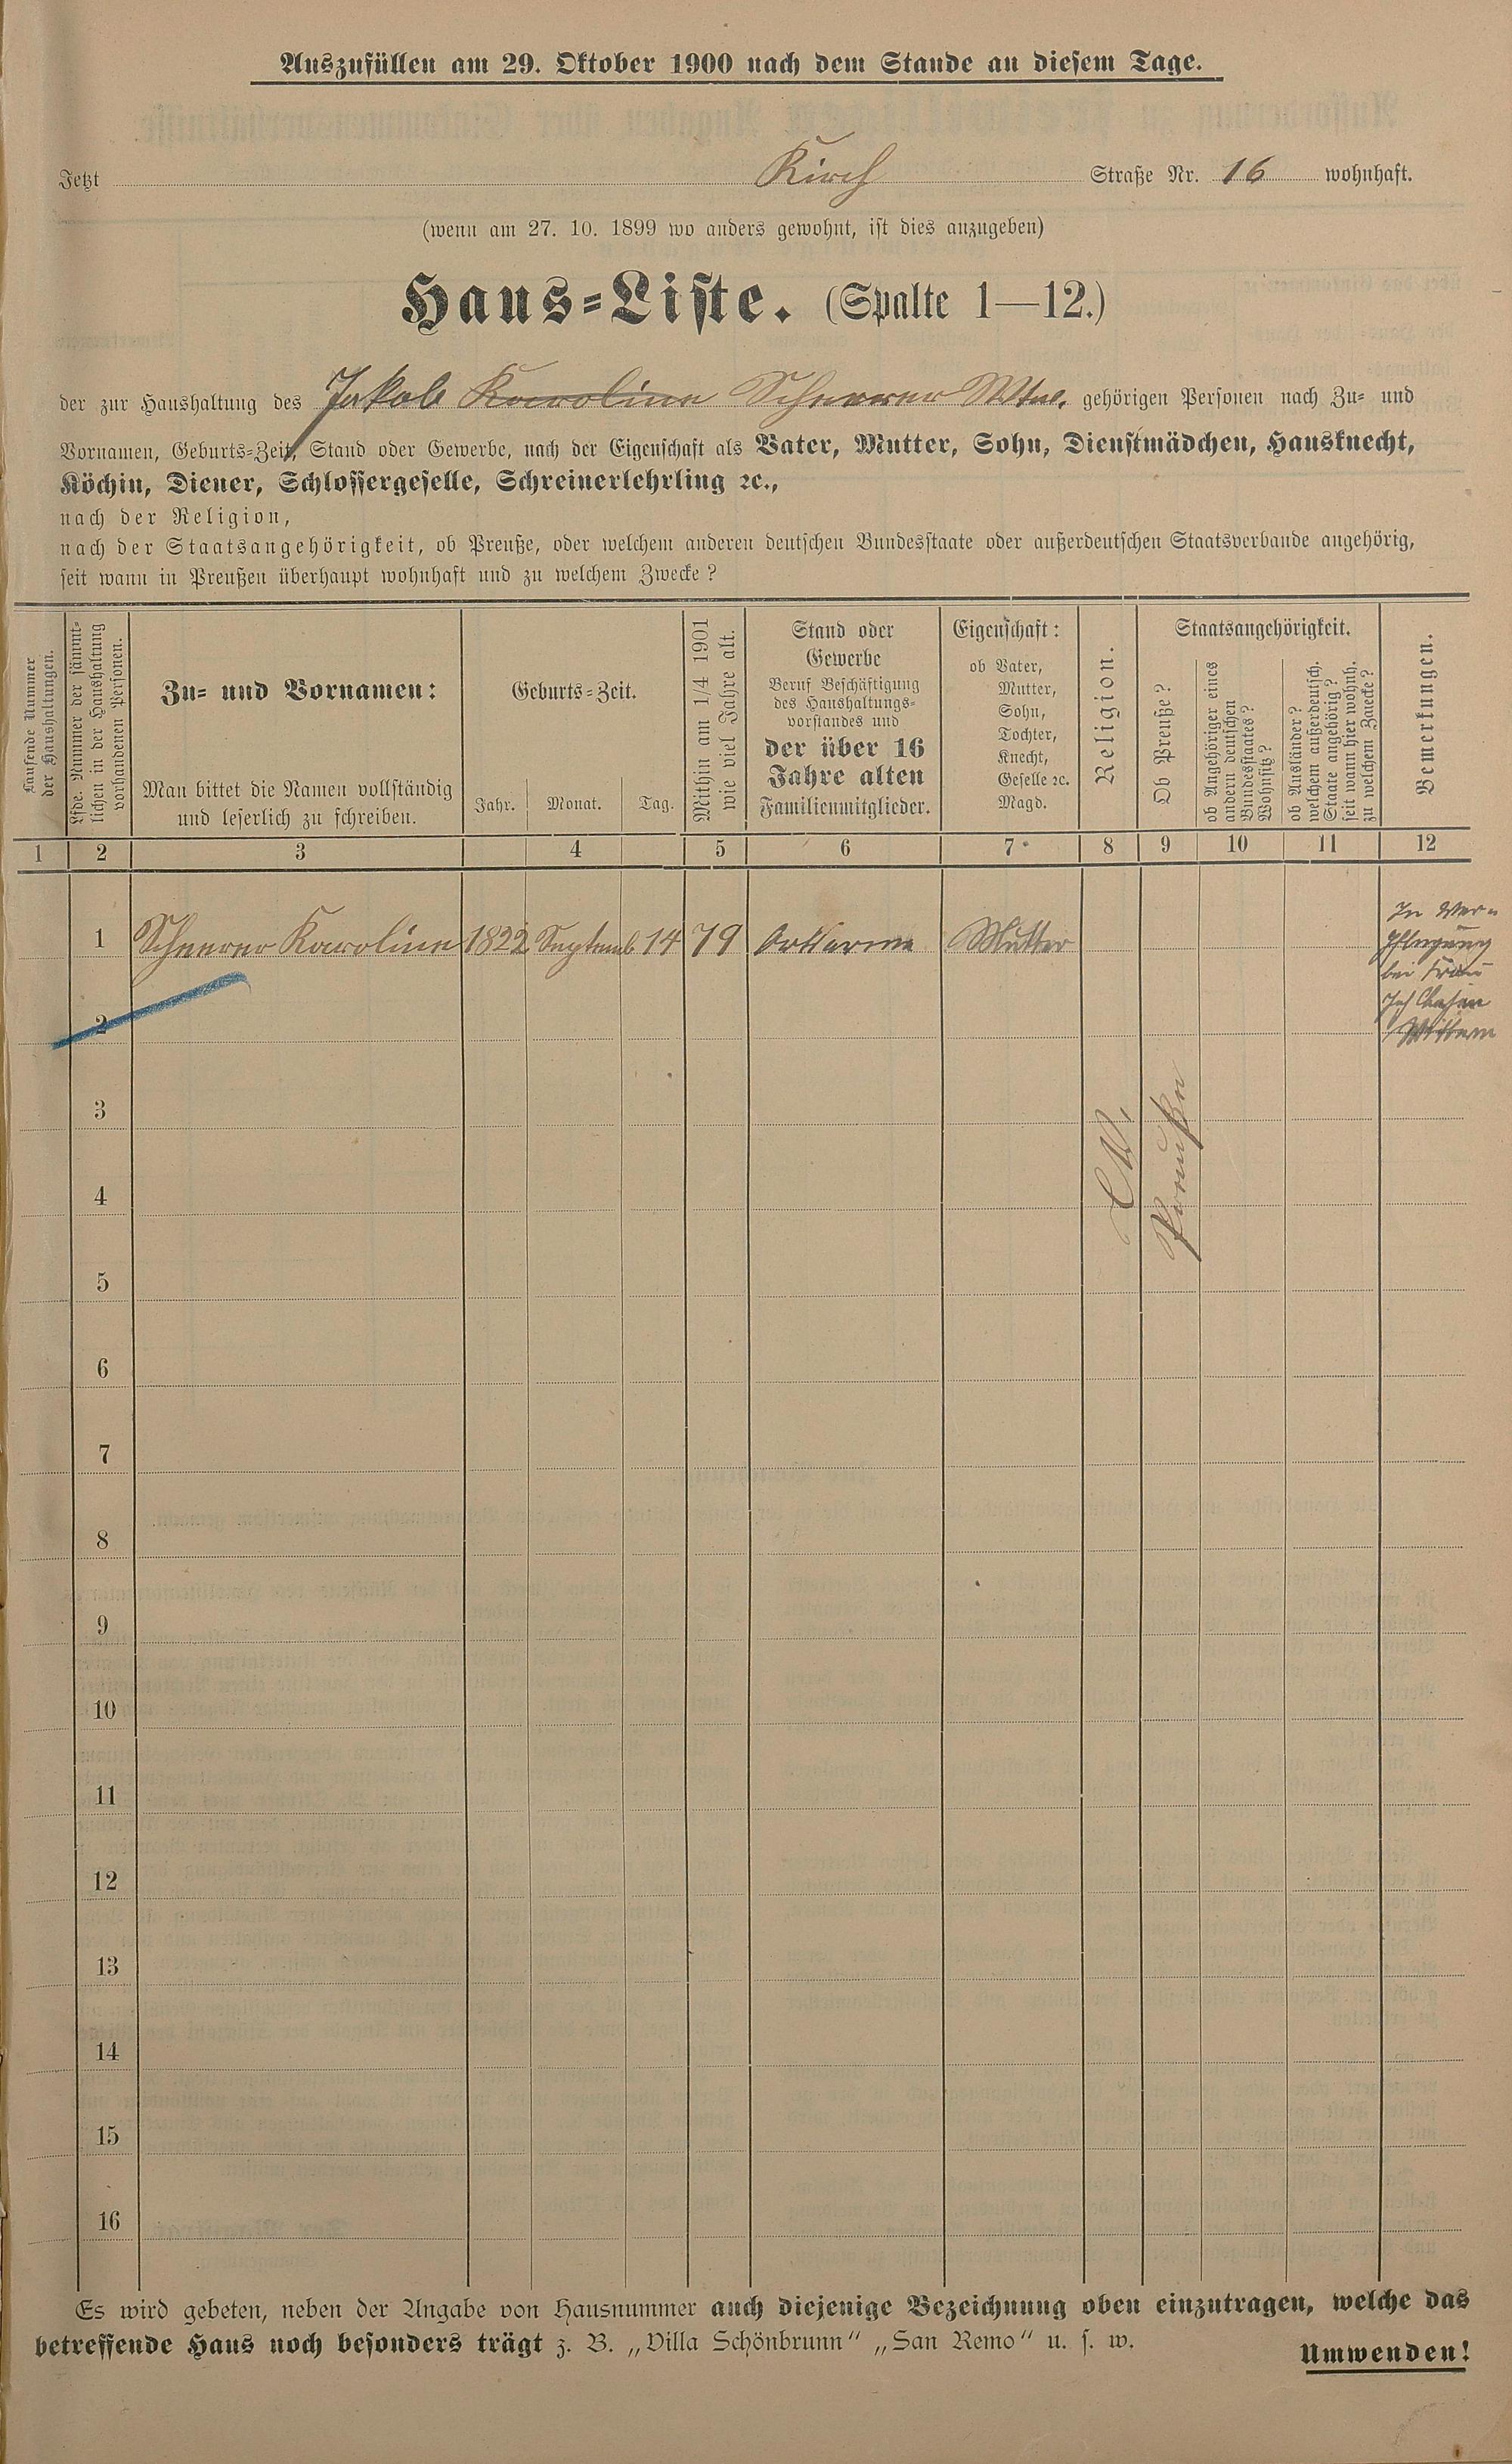 Auszufüllen am 29. Oktober 1900 nach dem Stande an diesem Tage.
Jetzt Kirch Straße Nr. 16 wohnhaft.
(wenn am 27. 10. 1899 wo anders gewohnt, ist dies anzugeben)
Haus-Liste. (Spalte 1—12.)
der zur Haushaltung des Jakob Karoline Scheerer Wtwe. gehörigen Personen nach Zu- und
Vornamen, Geburts-Zeit, Stand oder Gewerbe, nach der Eigenschaft als Vater, Mutter, Sohn, Dienstmädchen, Hausknecht,
Köchin, Diener, Schlossergeselle, Schreinerlehrling ꝛc.,
nach der Religion,
nach der Staatsangehörigkeit, ob Preuße, oder welchem anderen deutschen Bundesstaate oder außerdeutschen Staatsverbande angehörig,
seit wann in Preußen überhaupt wohnhaft und zu welchem Zwecke?
Laufende Nummer
der Haushaltungen.
Lfde. Nummer der sämmt-
lichen in der Haushaltung
vorhandenen Personen.
Zu- und Vornamen:
Man bittet die Namen vollständig
und leserlich zu schreiben.
Geburts-Zeit.
Jahr. Monat. Tag.
Mithin am 1/4 1901
wie viel Jahre alt.
Stand oder
Gewerbe
Beruf Beschäftigung
des Haushaltungs-
vorstandes und
der über 16
Jahre alten
Familienmitglieder.
Eigenschaft:
ob Vater,
Mutter,
Sohn,
Tochter,
Knecht,
Geselle ꝛc.
Magd.
Religion.
Staatsangehörigkeit.
Ob Preuße?
ob Angehöriger eines
andern deutschen
Bundesstaates?
Wohnsitz?
ob Ausländer?
welchem außerdeutsch.
Staate angehörig?
seit wann hier wohnh.
zu welchem Zwecke?
Bemerkungen.
1 2 3 4 5 6 7 8 9 10 11 12
1 Scheerer Karoline 1822 Septemb 14 79 Ortsarme Mutter
In Ver-
pflegung
bei Frau
Wittwe
2
3
4
Ev.
Preußen
5
6
7
8
9
10
11
12
13
14
15
16
Es wird gebeten, neben der Angabe von Hausnummer auch diejenige Bezeichnung oben einzutragen, welche das
betreffende Haus noch besonders trägt z. B. „Villa Schönbrunn“ „San Remo“ u. s. w.
Umwenden!